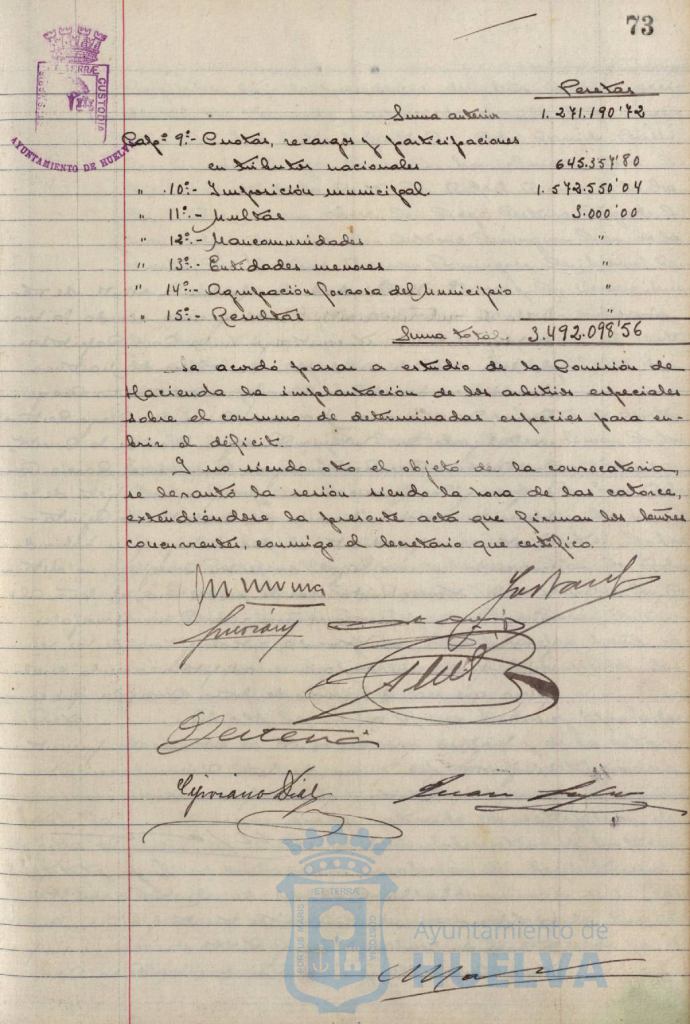 73
ET TERRÆ
CUSTODIA
AYUNTAMIENTO DE HUELVA
Pesetas
Suma anterior 1.271.190'72
Cap.º 9º.- Cuotas, recargos y participaciones
en tributos nacionales 645.357'80
" 10º.- Imposición municipal. 1.572.550'04
" 11º.- Multas 3.000'00
" 12º.- Mancomunidades "
" 13º.- Entidades menores "
" 14º.- Agrupación forzosa del Municipio "
" 15º.- Resultas "
Suma total. 3.492.098'56
Se acordó pasar a estudio de la Comisión de
Hacienda la implantación de los arbitrios especiales
sobre el consumo de determinadas especies para cu-
brir el déficit.
Y no siendo otro el objeto de la convocatoria,
se levantó la sesión siendo la hora de las catorce,
extendiéndose la presente acta que firman los Señores
concurrentes, conmigo el Secretario que certifico.
Cipriano Dial
Juan
PORTUS MARIS
ET TERRÆ
CUSTODIA
Ayuntamiento de
HUELVA